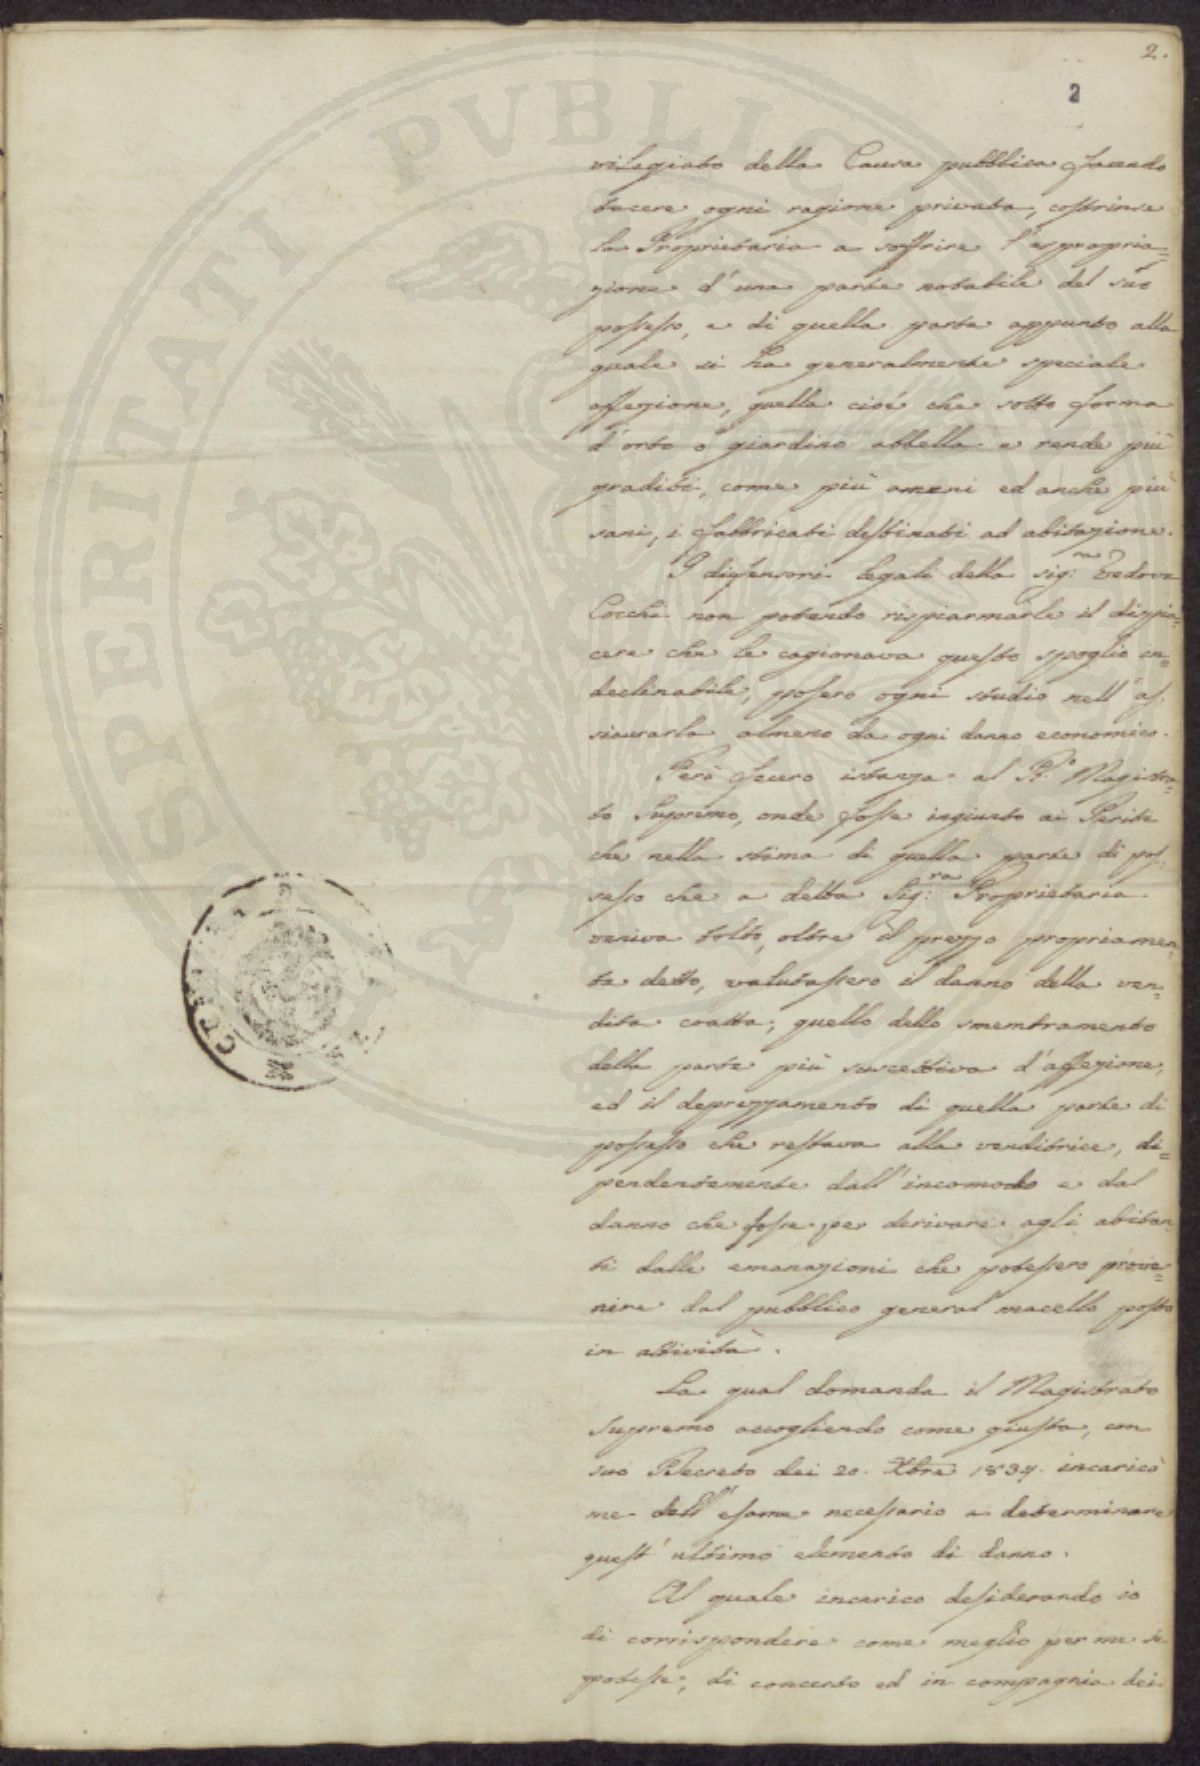 2.
2
vilegiato della Causa pubblica facendo
tacere ogni ragione privata, costrinse
la Proprietaria a soffrire l'espropria=
zione d'una parte notabile del suo
possesso, e di quella parte appunto alla
quale si ha generalmente speciale
affezione, quella cioé che sotto forma
d'orto o giardino abbella e rende più
graditi, come più ameni ed anche più
sani, i fabbricati destinati ad abitazione.
I difensori legali della sig:ra Vedova
Cocchi non potendo risparmiarle il dispia=
cere che le cagionava questo spoglio in=
declinabile, posero ogni studio nell'as=
sicurarla almeno da ogni danno economico.
Però fecero istanza al R.o Magistra=
to Supremo, onde fosse ingiunto ai Periti
che nella stima di quella parte di pos=
sesso che a detta Sig:ra Proprietaria
veniva tolto, oltre il prezzo propriamen=
te detto, valutassero il danno della ven=
dita coatta; quello dello smembramento
della parte più suscettiva d'affezione,
ed il deprezzamento di quella parte di
possesso che restava alla venditrice, di=
pendentemente dall'incomodo e dal
danno che fosse per derivare agli abitan
ti dalle emanazioni che potessero prove=
nire dal pubblico general macello posto
in attività.
La qual domanda il Magistrato
Supremo accogliendo come giusta, con
suo Decreto dei 20. Xbre 1834. incaricò
me dell'esame necessario a determinare
quest'ultimo elemento di danno.
Al quale incarico desiderando io
di corrispondere come meglio per me si
potesse, di concerto ed in compagnia dei
SPERITATI PVBLIC